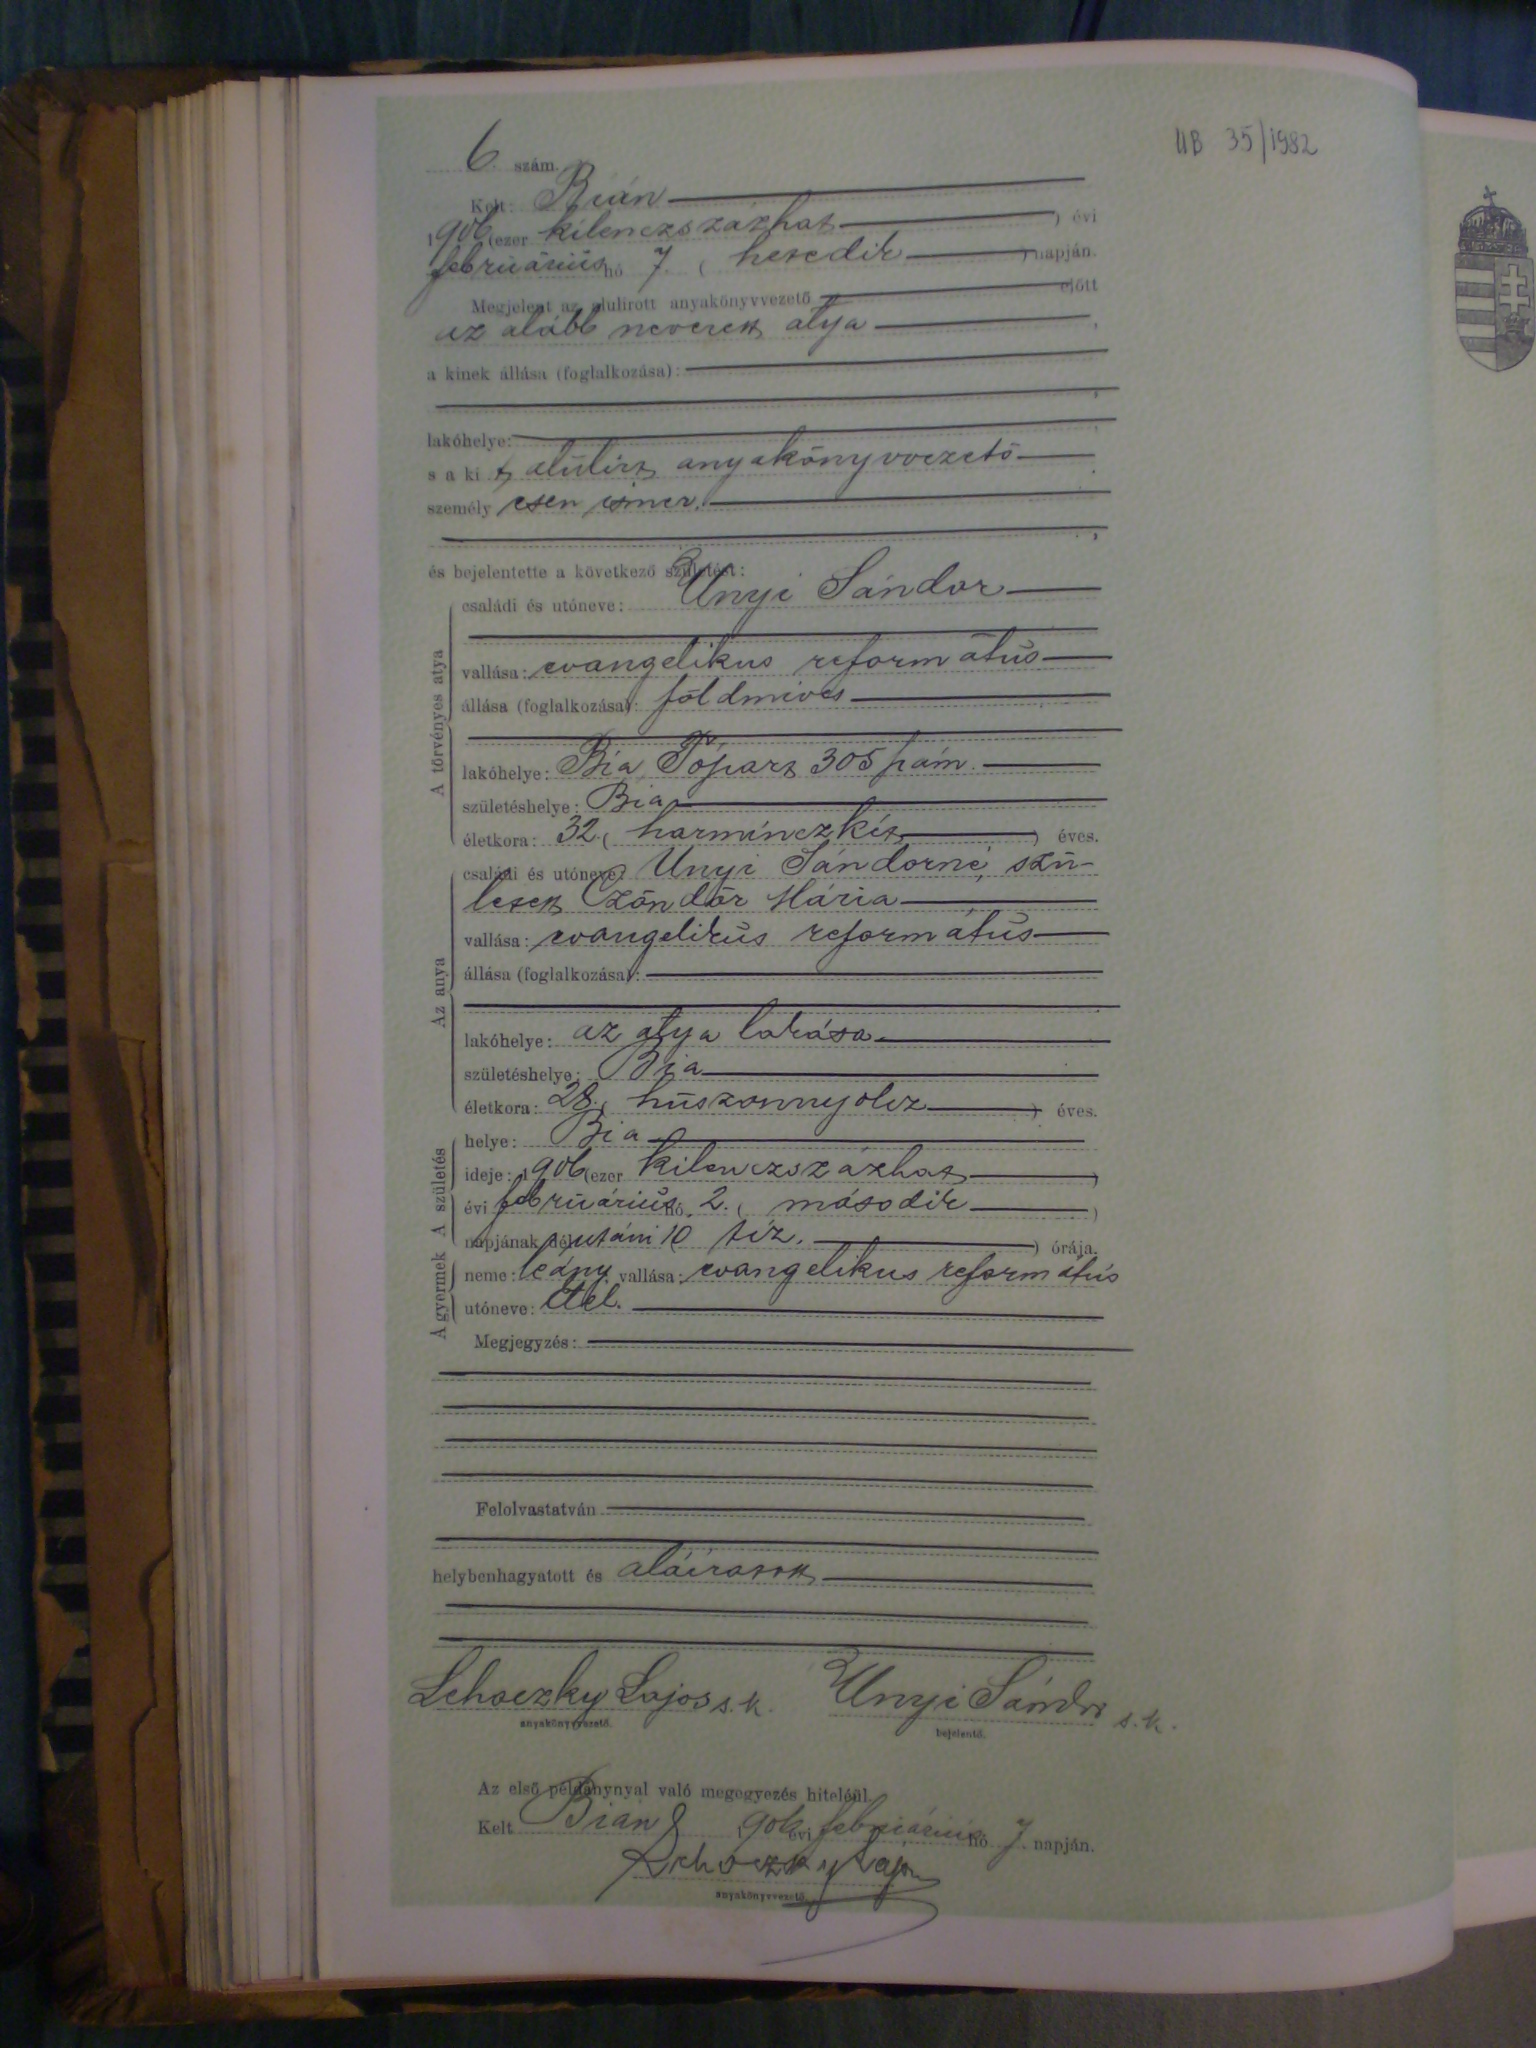 UB 35/1982
6. szám.
Kelt: Bián
1906 (ezer kilenczszázhat ) évi
februárius hó 7. ( hetedik ) napján.
Megjelent az alulirott anyakönyvvezető előtt
az alább nevezett atya ,
a kinek állása (foglalkozása):
,
lakóhelye: ,
s a ki t alulirt anyakönyvvezető
személy esen ismer.
,
és bejelentette a következő születést:
A törvényes atya
családi és utóneve: Unyi Sándor
vallása: evangelikus református
állása (foglalkozása): földmives
lakóhelye: Bia Tópart 305 szám.
születéshelye: Bia
életkora: 32. ( harminczkét ) éves.
Az anya
családi és utóneve: Unyi Sándorné, szü-
letett Czöndör Mária
vallása: evangelikus református
állása (foglalkozása):
lakóhelye: az atya lakása
születéshelye: Bia
életkora: 28. ( huszonnyolcz ) éves.
A születés
helye: Bia
ideje: 1906 (ezer kilenczszázhat )
évi februárius hó 2. ( második )
napjának délutáni 10 tiz. ) órája.
A gyermek
neme: leány. vallása: evangelikus református
utóneve: Etel.
Megjegyzés:
Felolvastatván
helybenhagyatott és aláiratott
Lehoczky Lajos s. k. Unyi Sándor s. k.
anyakönyvvezető. bejelentő.
Az első példánynyal való megegyezés hiteléül.
Kelt Bián 1906 évi februárius hó 7 napján.
Lehoczky Lajos
anyakönyvvezető.